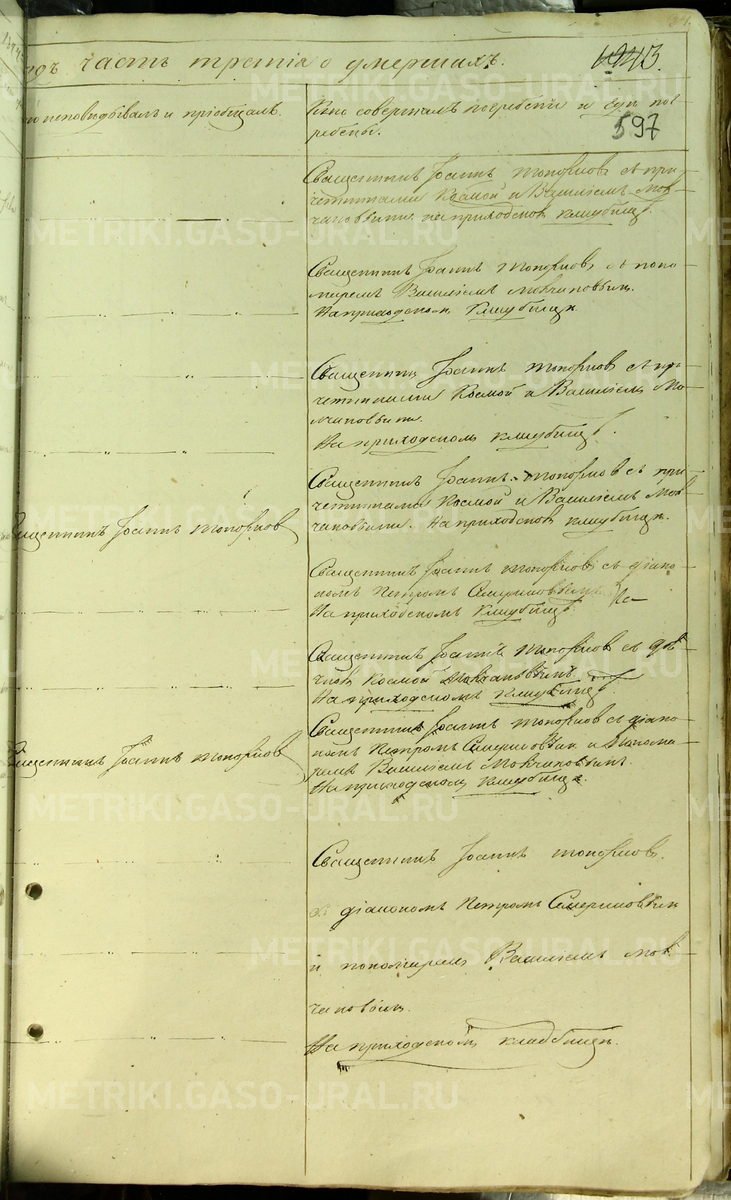 одъ часть третія о умершихъ.
597
исповѣдывалъ и пріобщалъ.
Кто совершалъ погребеніе и гдѣ пог-
ребены.
Священникъ Іоаннъ Топорковъ съ при-
четниками Космой и Василіемъ Мол-
чановыми на приходскомъ кладбищѣ.
Священникъ Іоаннъ Топорковъ съ поно-
маремъ Василіемъ Молчановымъ.
На приходскомъ кладбищѣ.
Священникъ Іоаннъ Топорковъ съ при-
четниками Космой и Василіемъ Мо-
лчановыми.
На приходскомъ кладбищѣ.
Священникъ Іоаннъ Топорковъ съ при-
четниками Космой и Василіемъ Мол-
чановыми. На приходскомъ кладбищѣ.
Священникъ Іоаннъ Топорковъ
Священникъ Іоаннъ Топорковъ съ діако-
номъ Петромъ
На приходскомъ кладбищѣ
Священникъ Іоаннъ Топорковъ съ дья-
Космой Молчановымъ
На приходскомъ кладбищѣ
Священникъ Іоаннъ Топорковъ съ діако-
номъ Петромъ и понома-
ремъ Василіемъ Молчановымъ.
На приходскомъ кладбищѣ.
Священникъ Іоаннъ Топорковъ
Священникъ Іоаннъ Топорковъ
съ діакономъ Петромъ
и пономаремъ Василіемъ Мол-
чановымъ.
На приходскомъ кладбищѣ.
METRIKI.GASO-URAL.RU